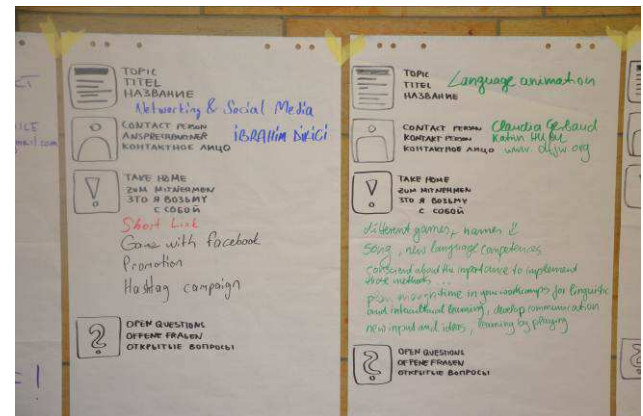 ICE
mail.com
!
TOPIC
TITEL
НАЗВАНИЕ
Networking & Social Media
CONTACT PERSON
ANSPRECHPARTNER
КОНТАКТНОЕ ЛИЦО
İBRAHİM
TAKE HOME
ZUM MITNEHMEN
ЭТО Я ВОЗЬМУ
С СОБОЙ
Short Link
Game with facebook
Promotion
Hashtag campaign
OPEN QUESTIONS
OFFENE FRAGEN
ОТКРЫТЫЕ ВОПРОСЫ
TOPIC
TITEL
НАЗВАНИЕ
Language animation
CONTACT PERSON
KONTAKT PERSON
КОНТАКТНОЕ ЛИЦО
Claudia
Katrin
www.dfjw.org
TAKE HOME
ZUM MITNEHMEN
ЭТО Я ВОЗЬМУ
С СОБОЙ
different games, names
song, new language competences
about the importance to implement
those methods ...
enough time in your workcamps for linguistic
and intercultural learning, develop communication
new input and ideas, learning by playing
OPEN QUESTIONS
OFFENE FRAGEN
ОТКРЫТЫЕ ВОПРОСЫ